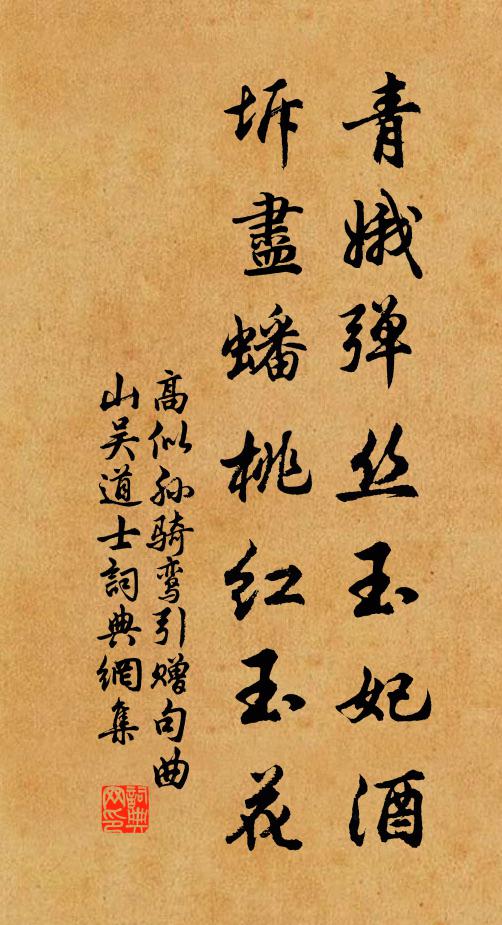 青娥弹丝玉妃酒
坼盡蟠桃红玉花
高似孙骑鸾引赠句曲
山吴道士詞典網集
詞典网印